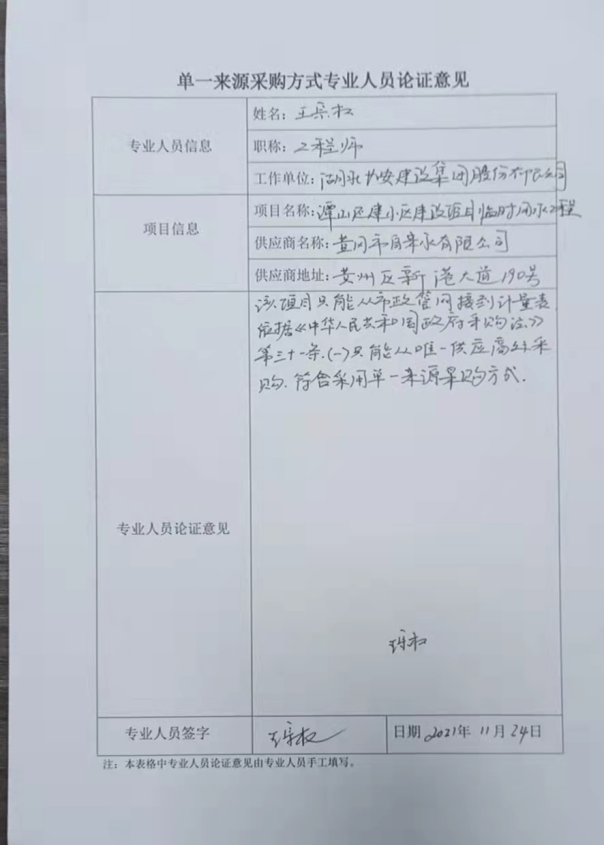 单一来源采购方式专业人员论证意见
专业人员信息
姓名：王
职称：工程师
工作单位：建设集团股份有限公司
项目信息
项目名称：潭山区建小区建设项目临时用水工程
供应商名称：黄冈市水有限公司
供应商地址：黄州区新港大道190号
专业人员论证意见
该项目只能从市政管网接到计量表
依据《中华人民共和国政府采购法》
第三十一条.(一)只能从唯一供应商处采
购.符合采用单一来源采购方式.
王权
专业人员签字
王权
日期 2021年 11月 24日
注：本表格中专业人员论证意见由专业人员手工填写。